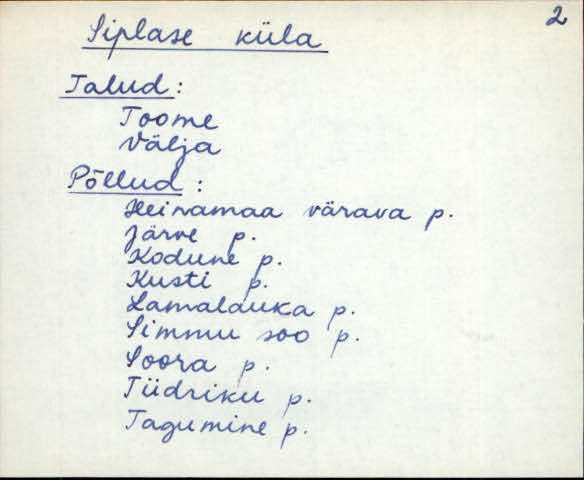 2
Siplase küla
Talud:
Toome
Välja
Põllud:
Heinamaa värava p.
Järve p.
Kodune p.
Kusti p.
Lamalauka p.
Simmu soo p.
Soora p.
Tiidriku p.
Tagumine p.